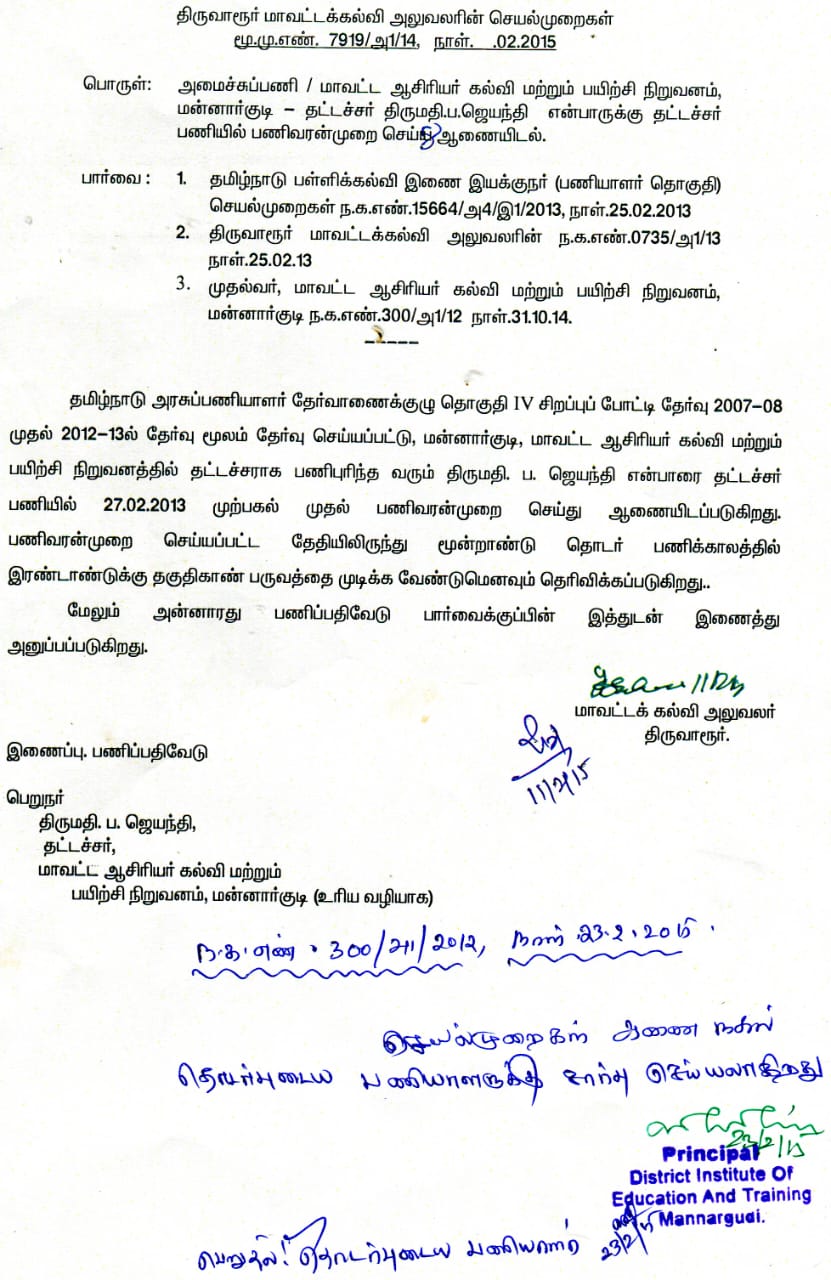 திருவாரூர் மாவட்டக்கல்வி அலுவலரின் செயல்முறைகள்
மூ.மு.எண். 7919/அ1/14, நாள். .02.2015
பொருள்: அமைச்சுப்பணி / மாவட்ட ஆசிரியர் கல்வி மற்றும் பயிற்சி நிறுவனம்,
மன்னார்குடி – தட்டச்சர் திருமதி.ப.ஜெயந்தி என்பாருக்கு தட்டச்சர்
பணியில் பணிவரன்முறை செய்து ஆணையிடல்.
பார்வை : 1. தமிழ்நாடு பள்ளிக்கல்வி இணை இயக்குநர் (பணியாளர் தொகுதி)
செயல்முறைகள் ந.க.எண்.15664/அ4/இ1/2013, நாள்.25.02.2013
2. திருவாரூர் மாவட்டக்கல்வி அலுவலரின் ந.க.எண்.0735/அ1/13
நாள்.25.02.13
3. முதல்வர், மாவட்ட ஆசிரியர் கல்வி மற்றும் பயிற்சி நிறுவனம்,
மன்னார்குடி ந.க.எண்.300/அ1/12 நாள்.31.10.14.
தமிழ்நாடு அரசுப்பணியாளர் தேர்வாணைக்குழு தொகுதி IV சிறப்புப் போட்டி தேர்வு 2007–08
முதல் 2012–13ல் தேர்வு மூலம் தேர்வு செய்யப்பட்டு, மன்னார்குடி, மாவட்ட ஆசிரியர் கல்வி மற்றும்
பயிற்சி நிறுவனத்தில் தட்டச்சராக பணிபுரிந்த வரும் திருமதி. ப. ஜெயந்தி என்பாரை தட்டச்சர்
பணியில் 27.02.2013 முற்பகல் முதல் பணிவரன்முறை செய்து ஆணையிடப்படுகிறது.
பணிவரன்முறை செய்யப்பட்ட தேதியிலிருந்து மூன்றாண்டு தொடர் பணிக்காலத்தில்
இரண்டாண்டுக்கு தகுதிகாண் பருவத்தை முடிக்க வேண்டுமெனவும் தெரிவிக்கப்படுகிறது..
மேலும் அன்னாரது பணிப்பதிவேடு பார்வைக்குப்பின் இத்துடன் இணைத்து
அனுப்பப்படுகிறது.
மாவட்டக் கல்வி அலுவலர்
திருவாரூர்.
11/2/15
இணைப்பு. பணிப்பதிவேடு
பெறுநர்
திருமதி. ப. ஜெயந்தி,
தட்டச்சர்,
மாவட்ட ஆசிரியர் கல்வி மற்றும்
பயிற்சி நிறுவனம், மன்னார்குடி (உரிய வழியாக)
ந.க.எண். 300/அ1/2012, நாள்.23.2.2015.
செயல்முறைகள் ஆணை நகல்
தொடர்புடைய பணியாளருக்கு சார்பு செய்யலாகிறது
23/2/15
Principal
District Institute Of
Education And Training
Mannargudi.
23/2/15
பெறுதல்: தொடர்புடைய பணியாளர்